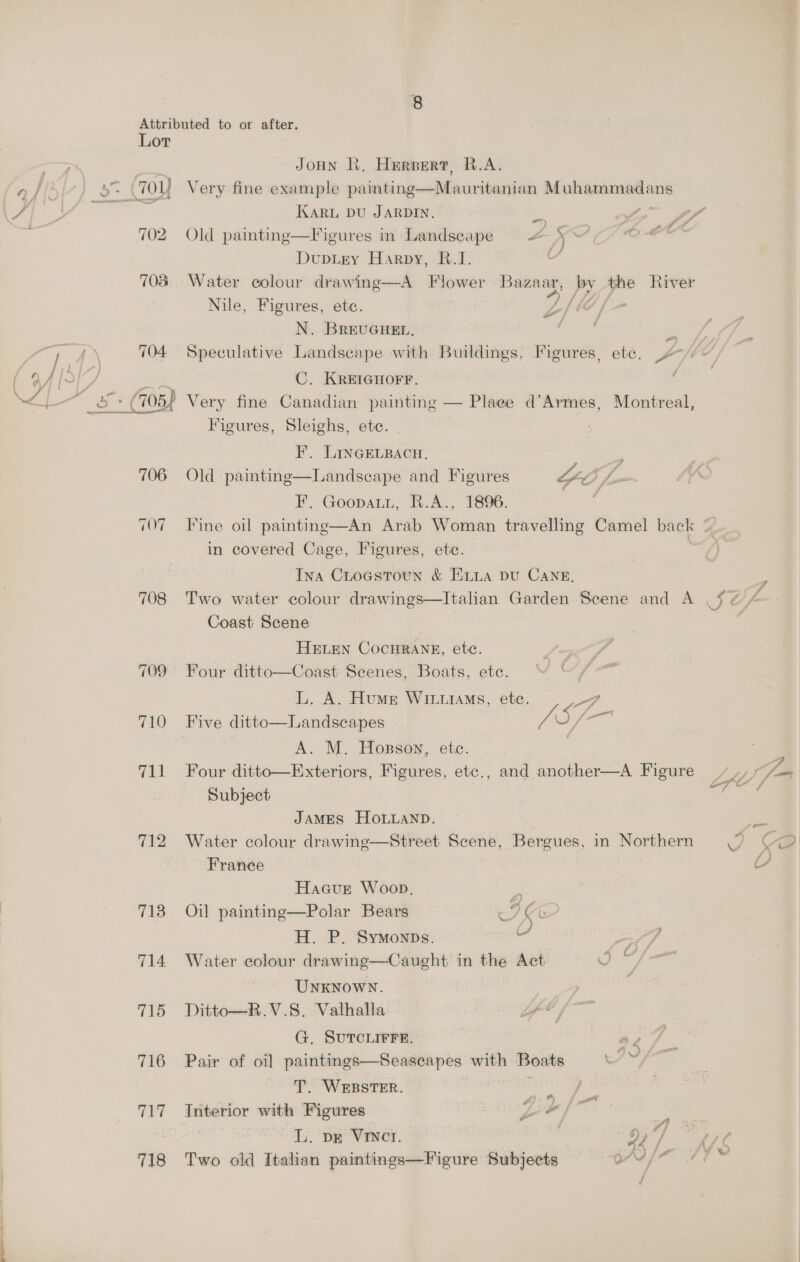 8
Attributed to or after.
Lot
John R. Herbert, R.A.
701 Very fine example painting—Mauritanian Muhammadans
Karl du Jardin.
702 Old painting—Figures in Landscape
Dudley Hardy, R.I.
703 Water colour drawing—A Flower Bazaar, by the River
Nile, Figures, etc.
N. Breughel.
704 Speculative Landscape with Buildings, Figures, etc.
C. Kreighoff.
705 Very fine Canadian painting — Place d'Armes, Montreal,
Figures, Sleighs, etc.
F. Lingelbach.
706 Old painting—Landscape and Figures
F. Goodall, R.A., 1896.
707 Fine oil painting—An Arab Woman travelling Camel back
in covered Cage, Figures, etc.
Ina Clogstoun & Ella du Cane.
708 Two water colour drawings—Italian Garden Scene and A
Coast Scene
Helen Cochrane, etc.
709 Four ditto—Coast Scenes, Boats, etc.
L. A. Hume Williams, etc.
710 Five ditto—Landscapes
A. M. Hobson, etc.
711 Four ditto—Exteriors, Figures, etc., and another—A Figure
Subject
James Holland.
712 Water colour drawing—Street Scene, Bergues, in Northern
France
Hague Wood.
713 Oil painting—Polar Bears
H. P. Symonds.
714 Water colour drawing—Caught in the Act
Unknown.
715 Ditto—R.V.S. Valhalla
G. Sutcliffe.
716 Pair of oil paintings—Seascapes with Boats
T. Webster.
717 Interior with Figures
L. de Vinci.
718 Two old Italian paintings—Figure Subjects